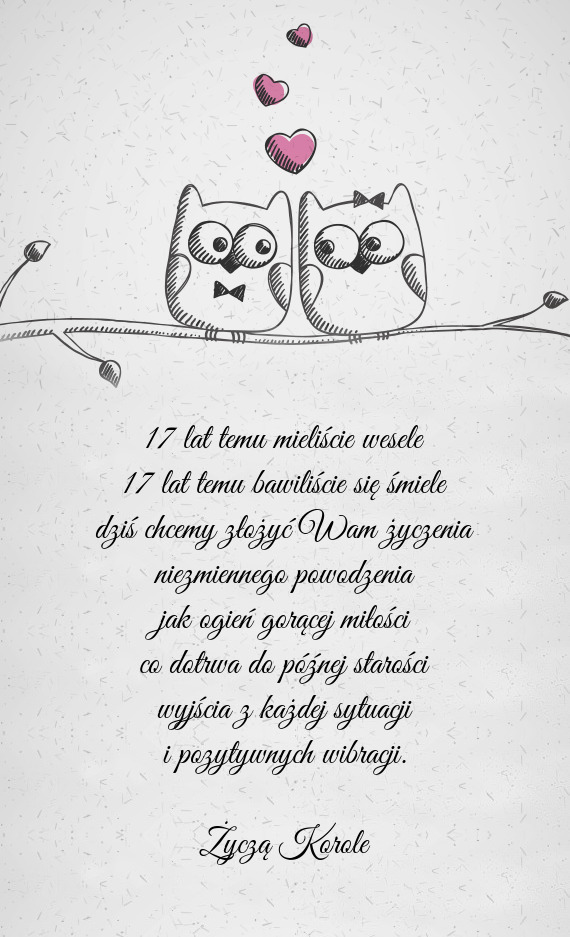 17 lat temu mieliście wesele
17 lat temu bawiliście się śmiele
dziś chcemy złożyć Wam życzenia
niezmiennego powodzenia
jak ogień gorącej miłości
co dotrwa do późnej starości
wyjścia z każdej sytuacji
i pozytywnych wibracji.
Życzą Korole